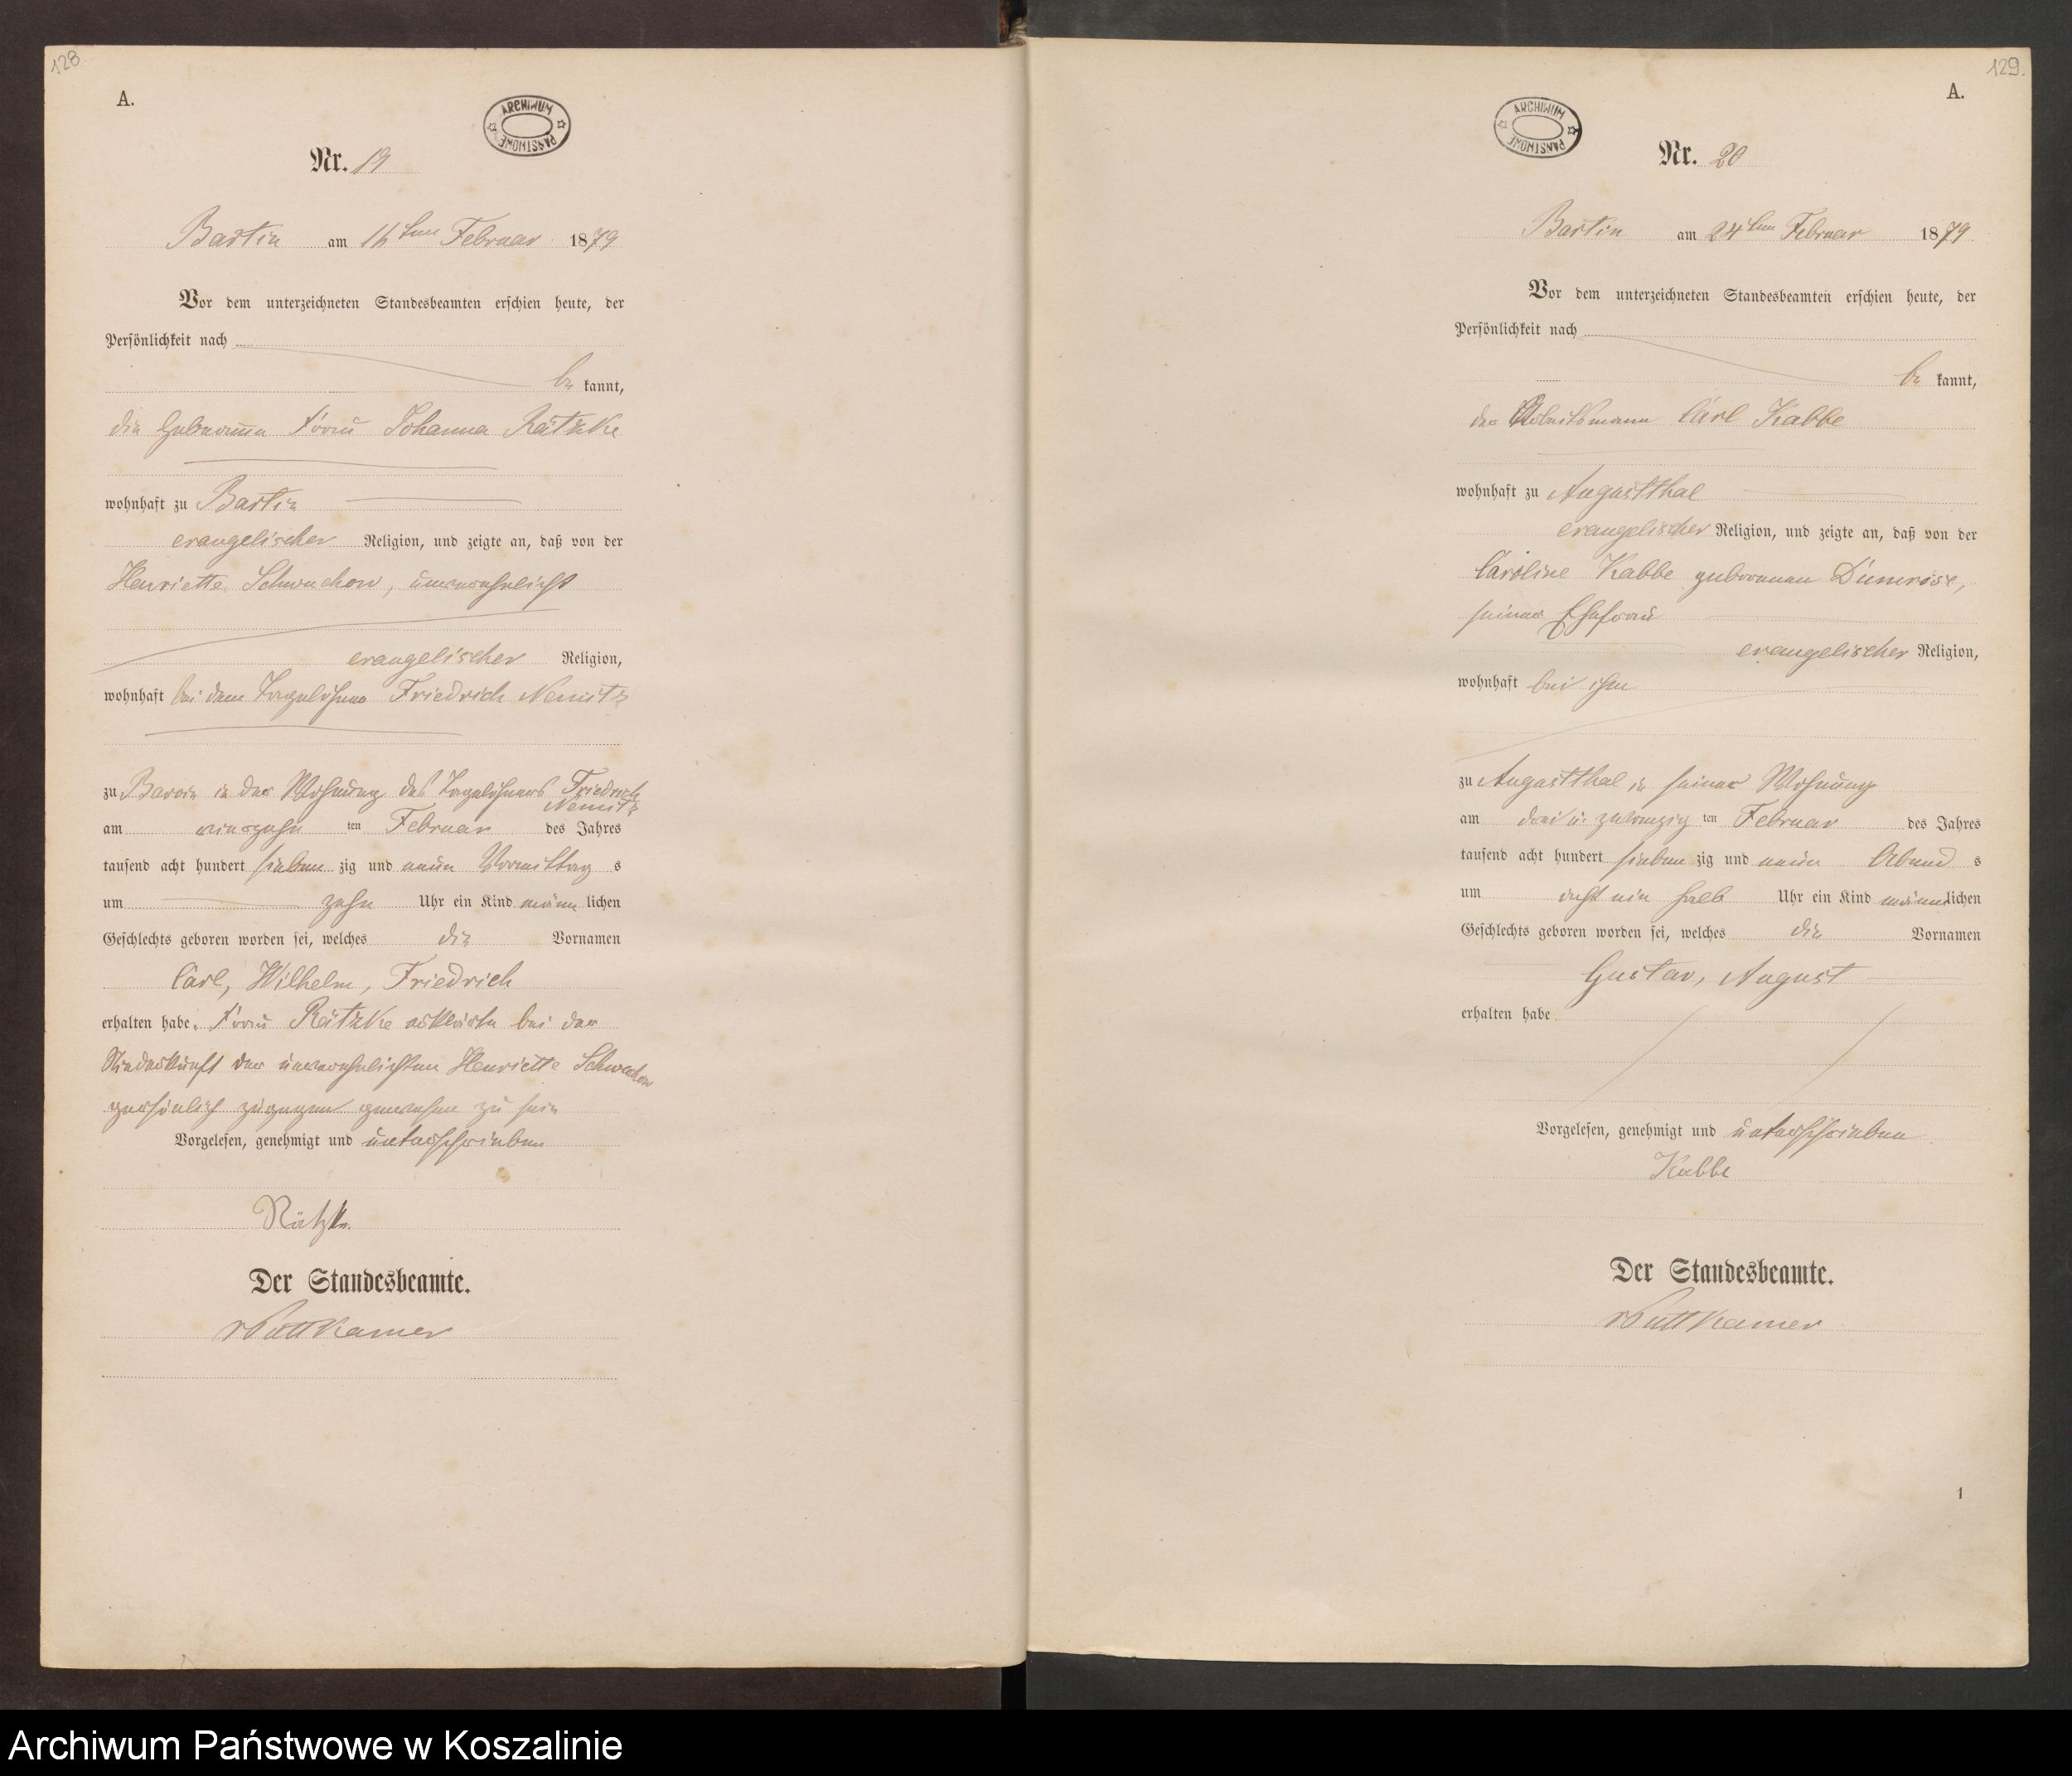 128
A.
ARCHIWUM PAŃSTWOWE
Nr. 19
Bartin am 16ten Februar 1879
Vor dem unterzeichneten Standesbeamten erschien heute, der
Persönlichkeit nach
be kannt,
die Hebeamme Frau Johanna Rätzke
wohnhaft zu Bartin
evangelischer Religion, und zeigte an, daß von der
Henriette Schwuchow, unverehelicht
evangelischer Religion,
wohnhaft bei dem Tagelöhner Friedrich Nemitz
zu in der Wohnung des Tagelöhners Friedrich
Nemitz
am vierzehn ten Februar des Jahres
tausend acht hundert sieben zig und neun Vormittag s
um zehn Uhr ein Kind männ lichen
Geschlechts geboren worden sei, welches die Vornamen
Carl, Wilhelm, Friedrich
erhalten habe. Frau Rätzke erklärte bei der
Niederkunft der unverehelichten Henriette Schwuchow
persönlich zugegen gewesen zu sein
Vorgelesen, genehmigt und unterschrieben
Rätzke.
Der Standesbeamte.
vPuttkamer
129.
A.
ARCHIWUM PAŃSTWOWE
Nr. 20
Bartin am 24ten Februar 1879
Vor dem unterzeichneten Standesbeamten erschien heute, der
Persönlichkeit nach
be kannt,
der Arbeitsmann Carl Kabbe
wohnhaft zu Augustthal
evangelischer Religion, und zeigte an, daß von der
Caroline Kabbe geborenen Dumröse,
seiner Ehefrau
evangelischer Religion,
wohnhaft bei ihm
zu Augustthal in seiner Wohnung
am drei u. zwanzig ten Februar des Jahres
tausend acht hundert sieben zig und neun Abend s
um acht ein halb Uhr ein Kind männlichen
Geschlechts geboren worden sei, welches die Vornamen
Gustav, August
erhalten habe
Vorgelesen, genehmigt und unterschrieben
Kabbe
Der Standesbeamte.
vPuttkamer
1
Archiwum Państwowe w Koszalinie